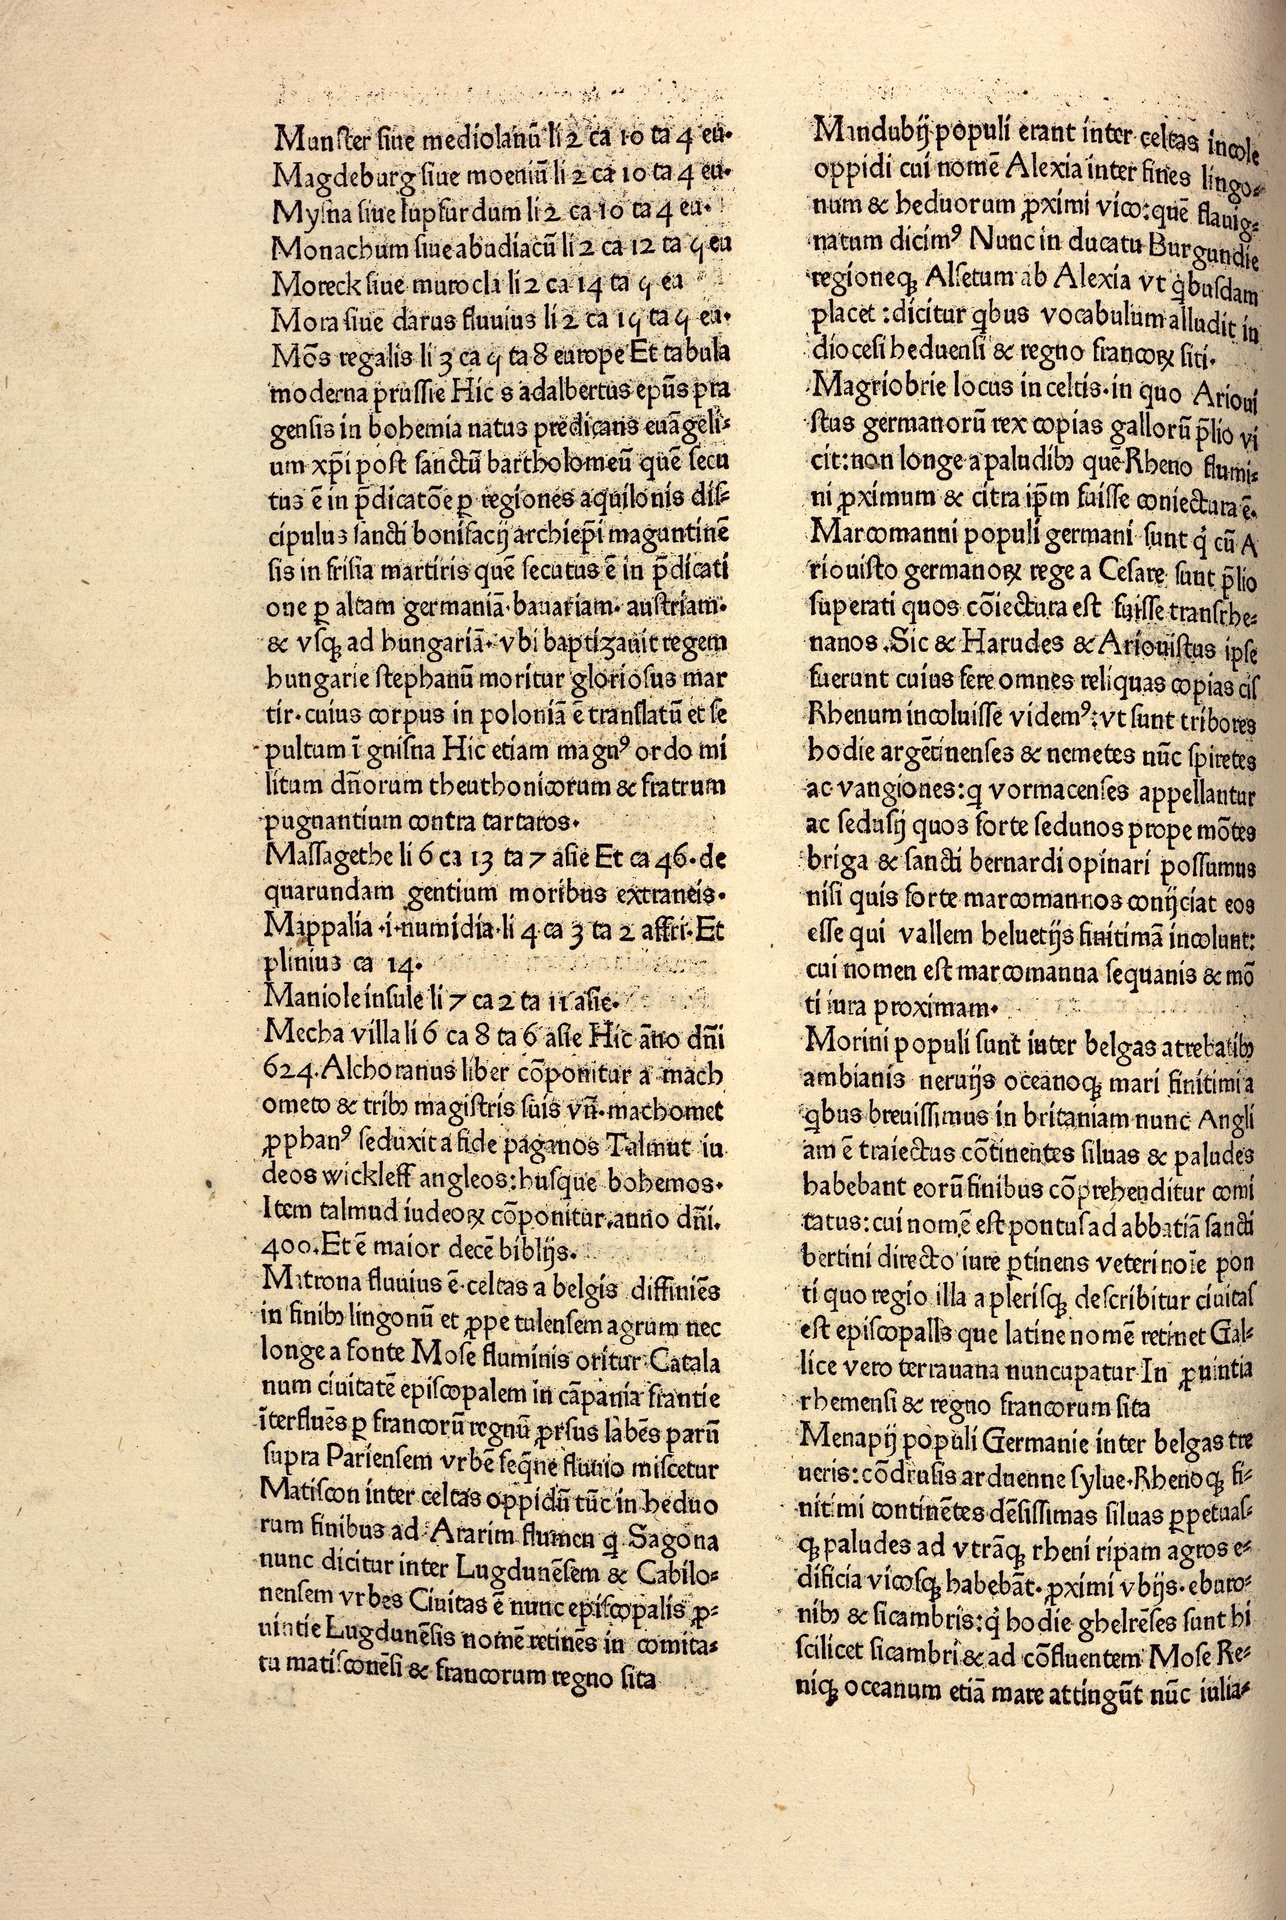 Munster siue mediolanū li 2 ca 10 ta 4 eu·
Magdeburg siue moeniū li 2 ca 10 ta 4 eu·
Mysna siue lupfurdum li 2 ca 10 ta 4 eu·
Monachum siue abudiacū li 2 ca 12 ta 5 eu
Moreck siue murocla li 2 ca 14 ta 5 eu
Mora siue darus fluuius li 2 ca 15 ta 5 eu·
Mōs regalis li 3 ca 5 ta 8 europe Et tabula
moderna prussie Hic s adalbertus ep̄us pra
gensis in bohemia natus predicans euāgeli⸗
um xp̄i post sanctū bartholomeū quē secu
tus ē in p̄dicatōe ꝑ regiones aquilonis dis⸗
cipulus sancti bonifacij archiep̄i maguntinē
sis in frisia martiris quē secutus ē in p̄dicati
one ꝑ altam germaniā·bauariam·austriam·
& vsqꝫ ad hungariā·vbi baptizauit regem
hungarie stephanū moritur gloriosus mar
tir·cuius corpus in poloniā ē translatū et se
pultum ī gnisna Hic etiam magnꝰ ordo mi
litum dn̄orum theuthonicorum & fratrum
pugnantium contra tartaros·
Massagethe li 6 ca 13 ta 7 asie Et ca 46·de
quarundam gentium moribus extraneis·
Mappalia·i·numidia·li 4 ca 3 ta 2 affri·Et
plinius ca 14·
Maniole insule li 7 ca 2 ta 11 asie·
Mecha villa li 6 ca 8 ta 6 asie Hic āno dn̄i
624·Alchoranus liber cōponitur a mach
ometo & tribꝫ magistris suis vn̄·machomet
ꝓphanꝰ seduxit a fide paganos Talmut iu
deos wickleff angleos:husque bohemos·
Item talmud iudeoꝝ cōponitur·anno dn̄i·
400·Et ē maior decē biblijs·
Matrona fluuius ē·celtas a belgis diffiniēs
in finibꝫ lingonū et ꝓpe tulensem agrum nec
longe a fonte Mose fluminis oritur·Catala
num ciuitatē episcopalem in cāpania frantie
īterfluēs ꝑ francorū regnū ꝓrsus labēs parū
supra Pariensem vrbē seq̄ne fluuio miscetur
Matiscon inter celtas oppidū tūc in heduo
rum finibus ad Ararim flumen q̄ Sagona
nunc dicitur inter Lugdunēsem & Cabilo⸗
nensem vrbes Ciuitas ē nunc episcopalis ꝓ⸗
uintie Lugdunēsis nomē retinēs in comita⸗
tu matiscōnēsi & francorum regno sita
Mandubij populi erant inter celtas incole
oppidi cui nomē Alexia inter fines lingo⸗
num & heduorum ꝓximi vico:quē flauig⸗
natum dicimꝰ Nunc in ducatu Burgundie
regioneqꝫ Alsetum ab Alexia vt q̇busdam
placet :dicitur qbus vocabulum alludit in
diocesi heduensi & regno francoꝝ siti·
Magriobrie locus in celtis·in quo Arioui
stus germanorū rex copias gallorū p̄lio vi
cit:non longe a paludibꝫ que Rheno flumi⸗
ni ꝓximum & citra ip̄m fuisse coniectura ē·
Marcomanni populi germani sunt q̇ cū A
riouisto germanoꝝ rege a Cesare sunt p̄lio
superati quos cōiectura est fuisse transrhe⸗
nanos·Sic & Harudes & Ariouistus ipse
fuerunt cuius fere omnes reliquas copias cis
Rhenum incoluisse videmꝰ:vt sunt tribores
hodie argētinenses & nemetes nūc spiretes
ac vangiones:q vormacenses appellantur
ac sedusij quos forte sedunos prope mōtes
briga & sancti bernardi opinari possumus
nisi quis forte marcomannos conijciat eos
esse qui vallem heluetijs finitimā incolunt:
cui nomen est marcomanna sequanis & mō
ti iura proximam·
Morini populi sunt inter belgas atrebatibꝫ
ambianis neruijs oceanoqꝫ mari finitimi a
qbus breuissimus in britaniam nunc Angli
am ē traiectus cōtinentes siluas & paludes
habebant eorū finibus cōprehenditur comi
tatus:cui nomē est pontus ad abbatiā sancti
bertini directo iure ꝑtinens veteri noīe pon
ti quo regio illa a plerisqꝫ describitur ciuitas
est episcopalis que latine nomē retinet Gal⸗
lice vero terrauana nuncupatur In ꝓuintia
rhemensi & regno francorum sita
Menapij populi Germanie inter belgas tre
ueris:cōdrusis arduenne sylue·Rhenoqꝫ fi⸗
nitimi continētes dēsissimas siluas ꝑpetuas⸗
qꝫ paludes ad vtrāqꝫ rheni ripam agros e⸗
dificia vicosqꝫ habebāt·ꝓximi vbijs·eburo⸗
nibꝫ & sicambris:q̇ hodie ghelrēses sunt hi
scilicet sicambri & ad cōfluentem Mose Re⸗
niqꝫ oceanum etiā mare attingūt nūc iulia⸗